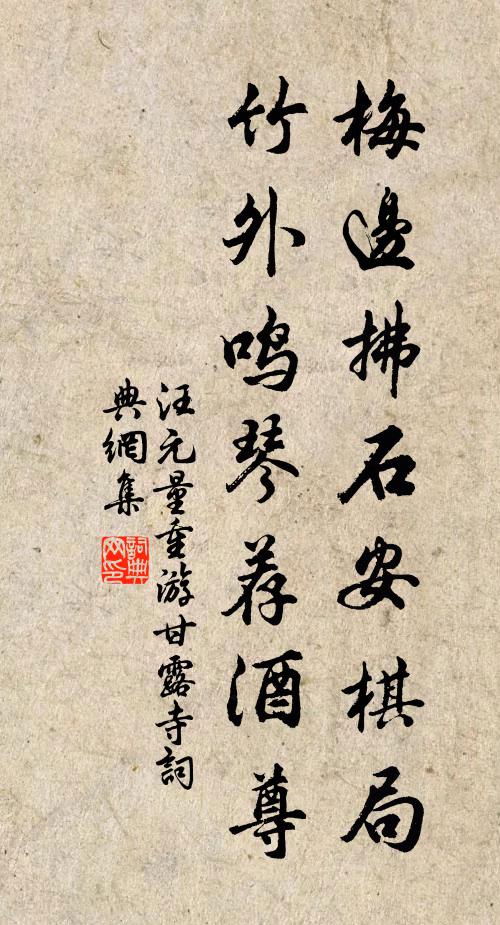 梅邊拂石安棋局
竹外鳴琴荐酒尊
汪元量重游甘露寺詞
典網集
詞典
网印